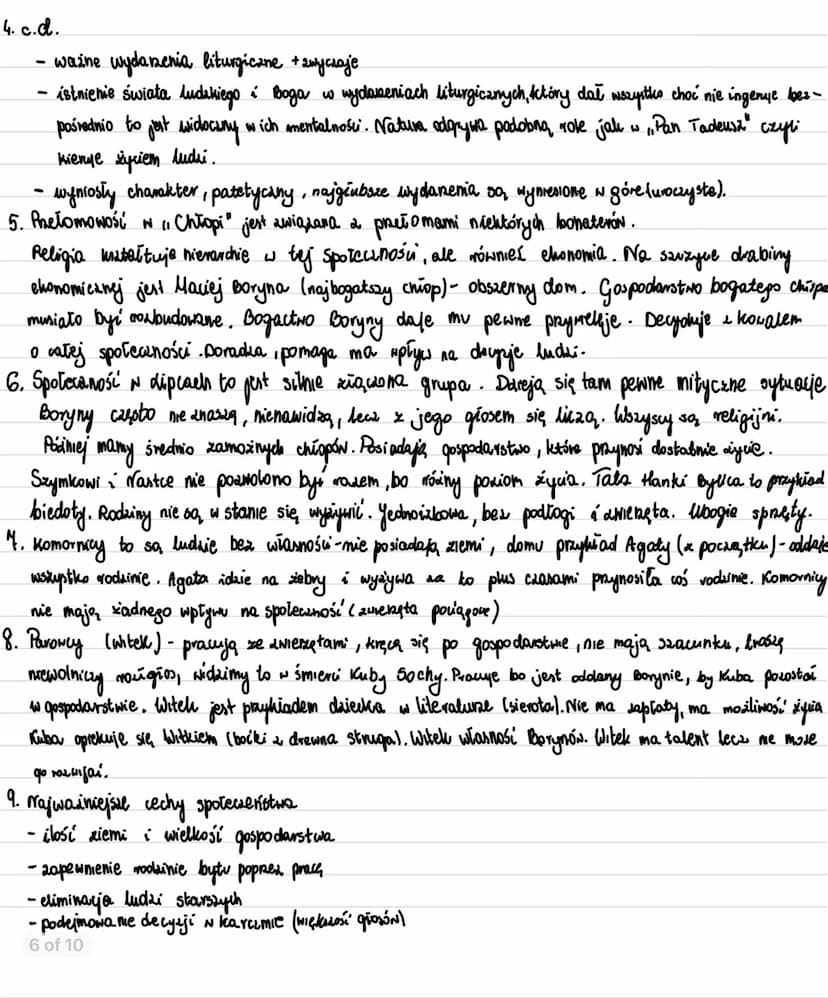 4. c.d.
- ważne wydarzenia liturgiczne + zwyczaje
- istnienie świata ludzkiego i Boga w wydarzeniach liturgicznych, który dał wszystko choć nie ingeruje bez-
pośrednio to jest widoczny w ich mentalności. Natura odgrywa podobną role jak w "Pan Tadeusz" czyli
kieruje życiem ludzi.
- wyniosły charakter, patetyczny, najgłubsze wydarzenia są wyniesione w górę (uroczyste).
5. Przełomowość w "Chłopi" jest związana z przełomami niektórych bohaterów.
Religia kształtuje hierarchie w tej społeczności, ale również ekonomia. Na szczycie drabiny
ekonomicznej jest Maciej Boryna (najbogatszy chłop) - obszerny dom. Gospodarstwo bogatego chłopa
musiało być rozbudowane. Bogactwo Boryny daje mu pewne przywileje. Decyduje z kowalem
o całej społeczności. Doradza, pomaga ma wpływ na decyzje ludzi.
6. Społeczność w Lipcach to jest silnie złączona grupa. Dzieją się tam pewne mityczne sytuacje
Boryny często nie znoszą, nienawidzą, lecz z jego głosem się liczą. Wszyscy są religijni.
Później mamy średnio zamożnych chłopów. Posiadają gospodarstwo, które przynosi dostatnie życie.
Szymkowi i Nastce nie pozwolono być razem, bo różny poziom życia. Tata Hanki Bylica to przykład
biedoty. Rodziny nie są w stanie się wyżywić. Jednoizbowa, bez podłogi i zwierzęta. Ubogie sprzęty.
7. Komornicy to są ludzie bez własności - nie posiadają ziemi, domu przykład Agaty (z początku) - oddaje
wszystko rodzinie. Agata idzie na żebry i wyżywa za to plus czasami przynosiła coś rodzinie. Komornicy
nie mają żadnego wpływu na społeczność (zwierzęta pociągowe)
8. Parowcy (Witek) - pracują ze zwierzętami, kręcą się po gospodarstwie, nie mają szacunku,
niewolniczy widzimy to w śmierci Kuby Sochy. Pracuje bo jest oddany Borynie, by Kuba pozostać
w gospodarstwie. Witek jest przykładem dziecka w literaturze (sierota). Nie ma zapłaty, ma możliwość życia
Kuba opiekuje się Witkiem (boćki z drewna struga). Witek własność Borynów. Witek ma talent lecz nie może
go rozwijać.
9. Najważniejsze cechy społeczeństwa
- ilość ziemi i wielkość gospodarstwa
- zapewnienie rodzinie bytu poprzez pracę
- eliminacja ludzi starszych
- podejmowanie decyzji w karczmie (większość głosów)
6 of 10